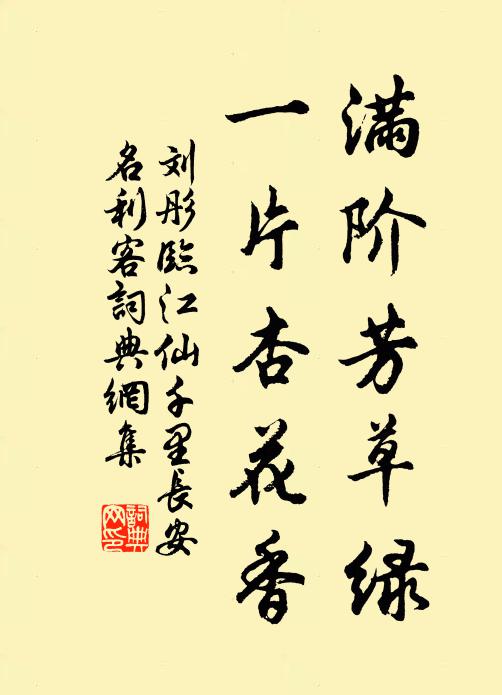 满阶芳草绿
一片杏花香
刘彤臨江仙千里長安
名利客詞典網集
詞典
网印